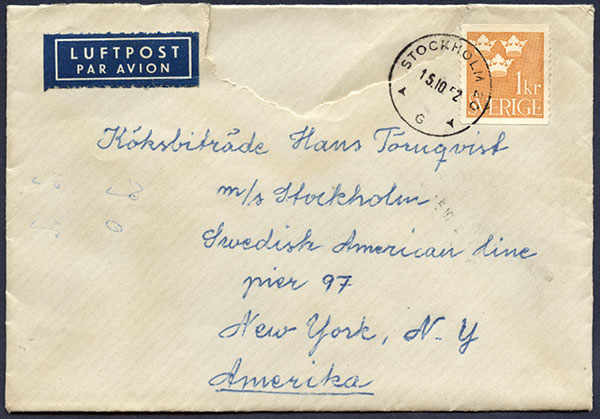 LUFTPOST
PAR AVION
STOCKHOLM 20
15.10.52
G
1kr
SVERIGE
Köksbiträde Hans Törnqvist
m/s Stockholm
Swedish American line
pier 97
New York, N.Y
Amerika